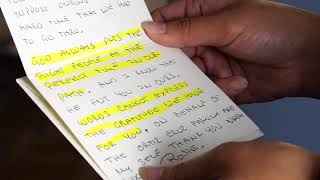 SUPPORT DURING
HARD TIME THAT WE HAD
TO GO THRU.
GOD ALWAYS PUTS THE
RIGHT PEOPLE AT THE
PERFECT TIME IN OUR
PATH. AND I KNOW THAT
HE PUT YOU IN OURS.
WORDS CANNOT EXPRESS
THE GRATITUDE WE HAVE
FOR YOU. ON BEHALF OF
THE ORTIZ CRUZ FAMILY AND
MY SELF THANK YOU
ROSIE.